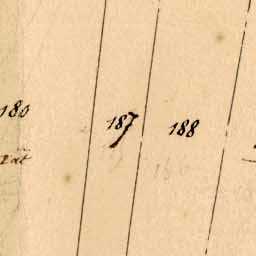 180
187
188